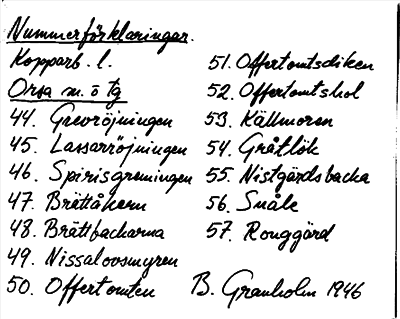 Nummerförklaringar.
Kopparb. l.
Orsa sn. o tg
44. Grevröjningen
45. Lassarröjningen
46. Spirisgreningen
47. Brättåkern
48. Brättbackarna
49. Nissalovsmyren
50. Offertomten
51. Offertomtsdiken
52. Offertomtshol
53. Källmoren
54. Gråtlök
55. Nistgärdsbacka
56. Snåle
57. Ronggärd
B. Granholm 1946